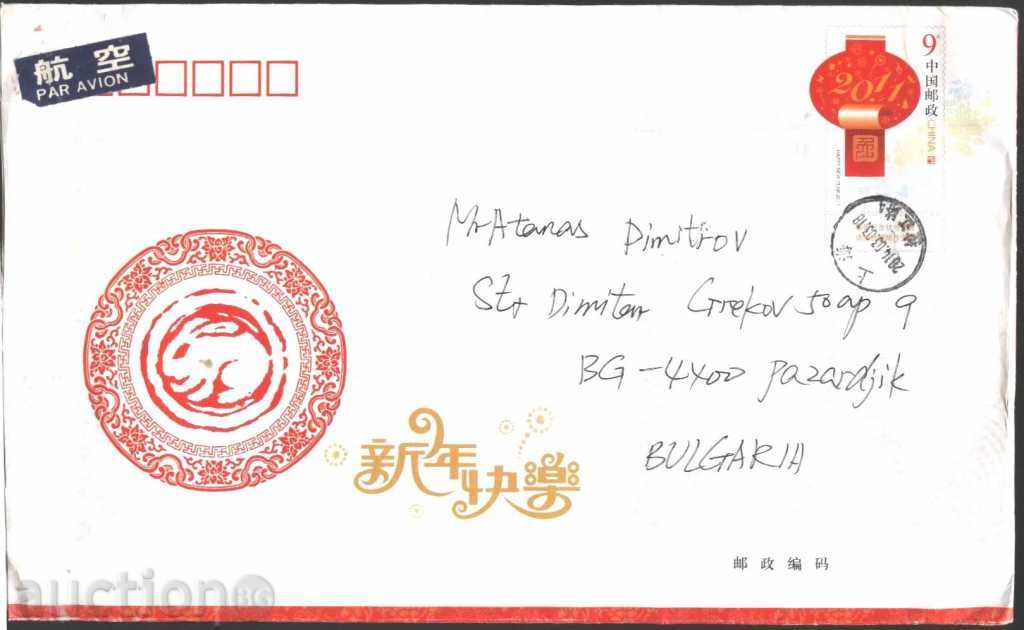 航空
PAR AVION
9
中国邮政
CHINA
2011
上海
2014.03.03.18
Mr Atanas Dimitrov
Str Dimitar Grekov 50 ap 9
BG-4400 pazardjik
BULGARIA
新年快樂
邮政编码
auction BG